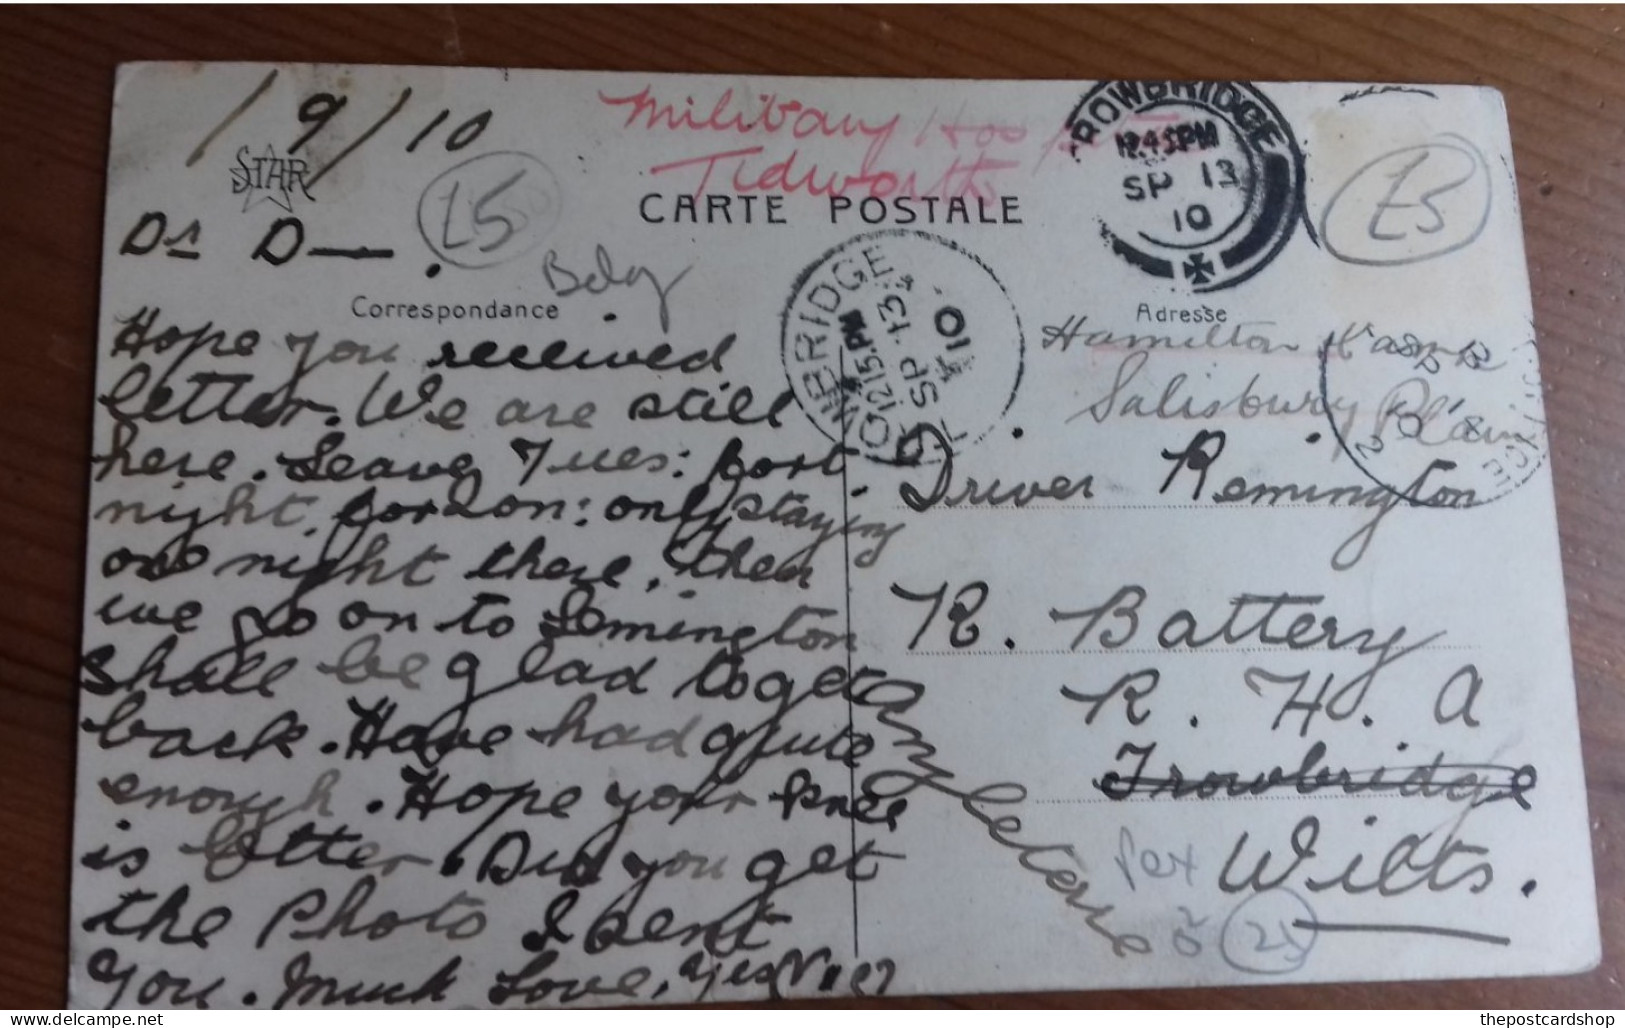 1/9/10
STAR
£5
Military Hospital
Tidworth
CARTE POSTALE
TROWBRIDGE
12.45PM
SP 13
10
£5
Dr D—.
Belg
Correspondance
Adresse
TROWBRIDGE
12.15PM
SP 13
10
Hope you received
letter. We are still
here. Leave Tues: fort
night, London: only staying
one night there, then
we go on to Lemington
shall be glad to get
back. Have had quite
enough. Hope your knee
is better. Did you get
the Photo I sent
you. Much Love,
Any letters
Hamilton Camp
Salisbury Plain
Driver Remington
R. Battery
R. H. A
Trowbridge
Wilts.
25
thepostcardshop